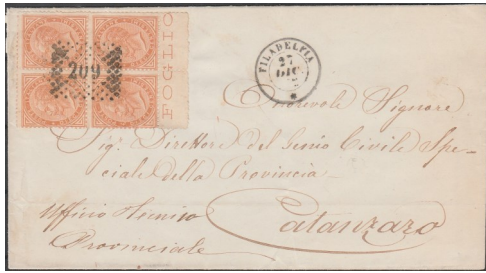 209
FOGLIO
FILADELFIA
27
DIC
Onorevole Signore
Sig. Direttore del Genio Civile Spe-
ciale della Provincia
Uffizio Tecnico
Catanzaro
Provinciale